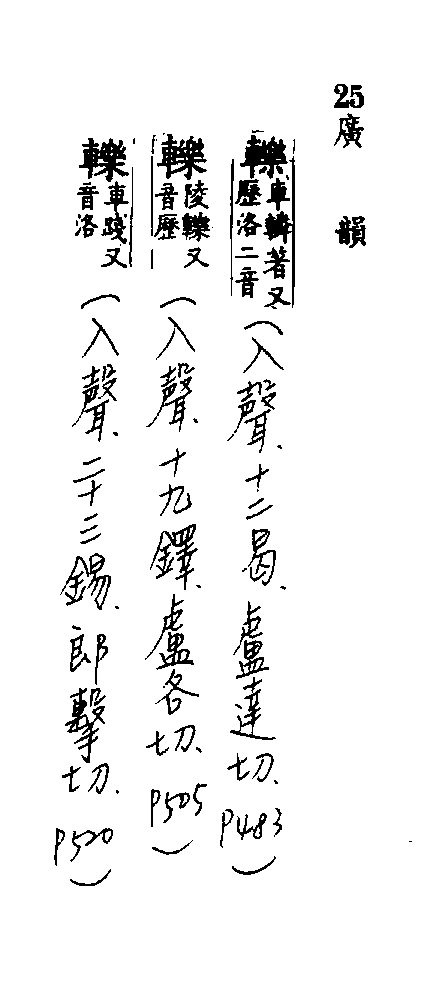 25
廣韻
轢 車轔著又歷洛二音(入聲、十二曷、盧達切、P483)
轢 陵轢又音歷(入聲、十九鐸、盧各切、P505)
轢 車踐又音洛(入聲、二十三錫、郎擊切、P520)